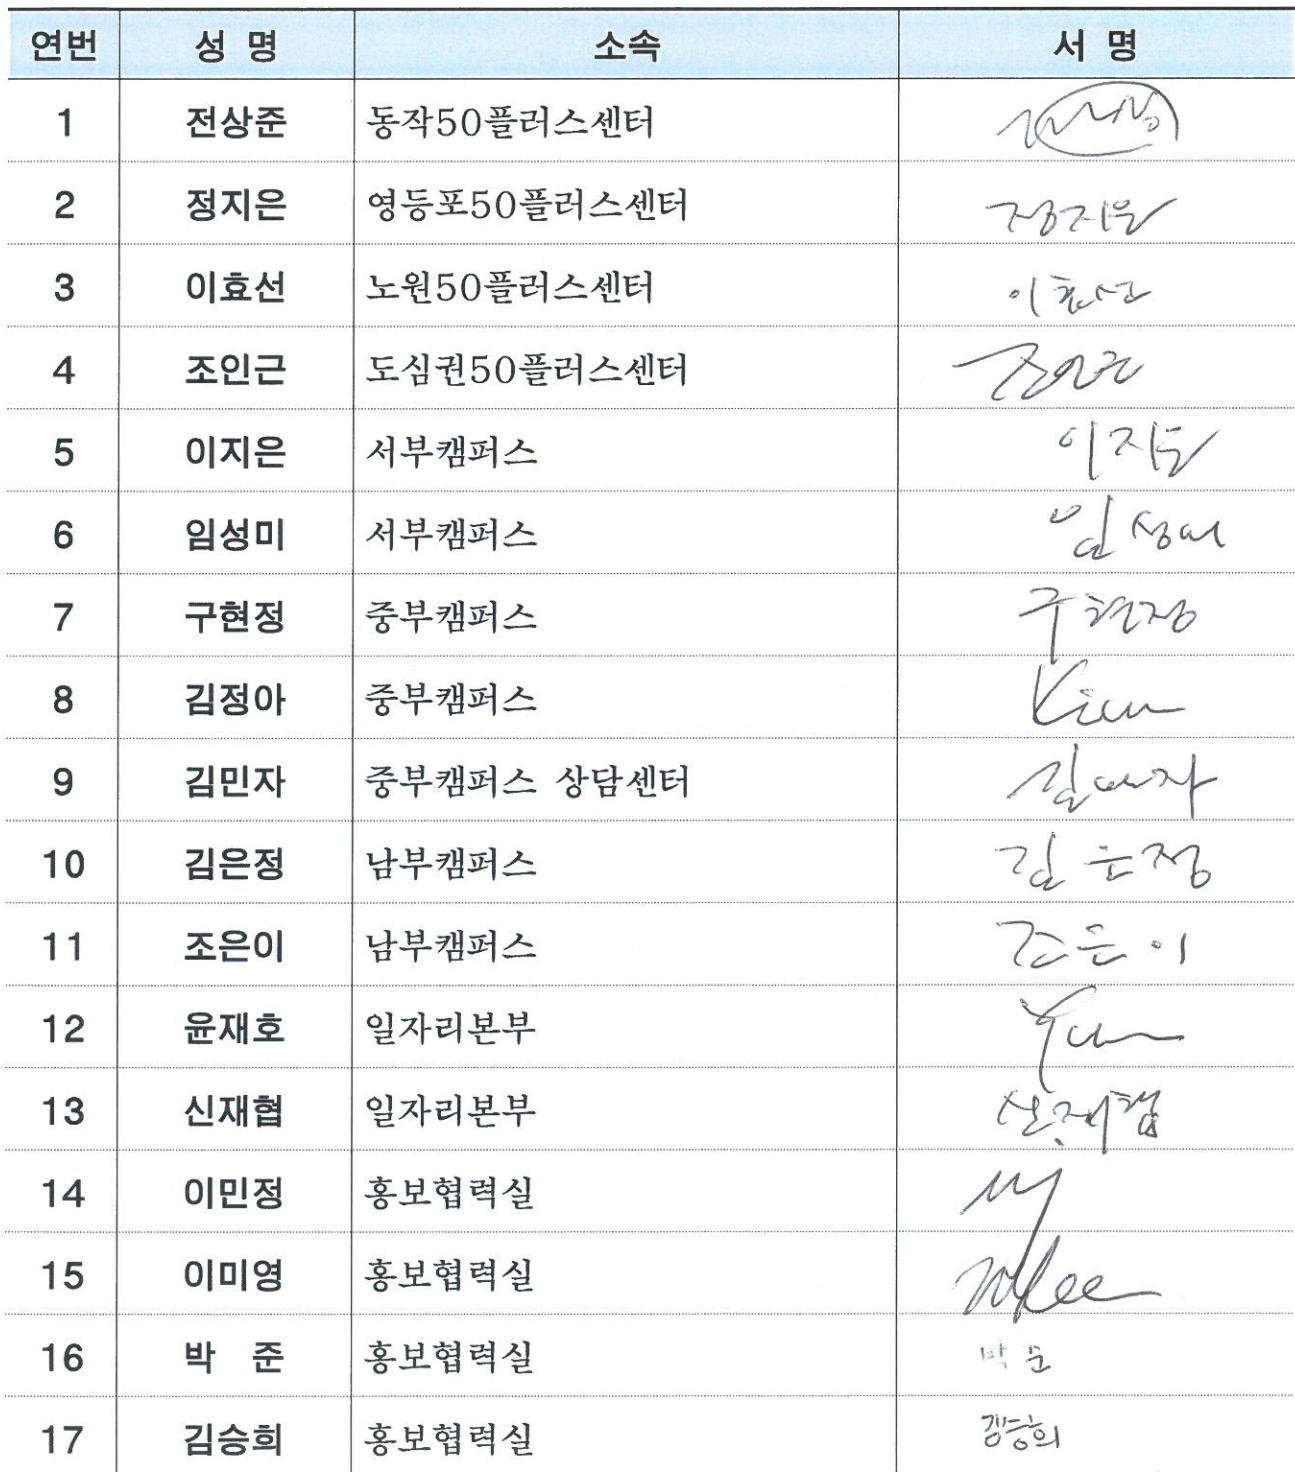 연번 성 명 소속 서 명
1 전상준 동작50플러스센터
2 정지은 영등포50플러스센터 정지은
3 이효선 노원50플러스센터 이효선
4 조인근 도심권50플러스센터 조인근
5 이지은 서부캠퍼스 이지은
6 임성미 서부캠퍼스 임성미
7 구현정 중부캠퍼스 구현정
8 김정아 중부캠퍼스 Kim
9 김민자 중부캠퍼스 상담센터 김민자
10 김은정 남부캠퍼스 김은정
11 조은이 남부캠퍼스 조은이
12 윤재호 일자리본부
13 신재협 일자리본부 신재협
14 이민정 홍보협력실
15 이미영 홍보협력실
16 박 준 홍보협력실 박 준
17 김승희 홍보협력실 김승희